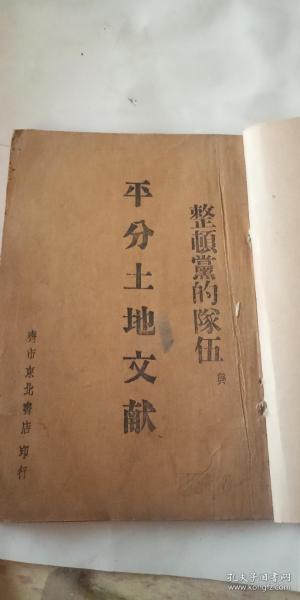 整頓黨的隊伍 與
平分土地文献
齊市東北書店 印行
孔夫子旧书网